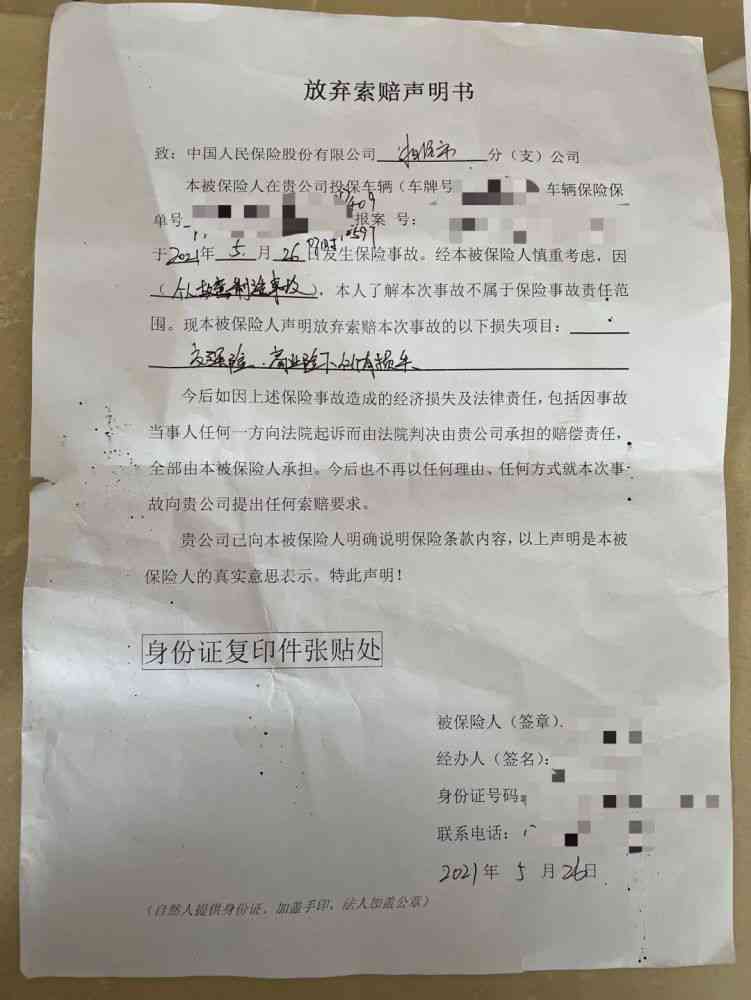 放弃索赔声明书
致：中国人民保险股份有限公司 分（支）公司
本被保险人在贵公司投保车辆（车牌号 车辆保险保
单号 报案 号：
于2021年 5 月 26 日发生保险事故。经本被保险人慎重考虑，因
（个人故意制造事故），本人了解本次事故不属于保险事故责任范
围。现本被保险人声明放弃索赔本次事故的以下损失项目：
交强险、商业险下所有损失
今后如因上述保险事故造成的经济损失及法律责任，包括因事故
当事人任何一方向法院起诉而由法院判决由贵公司承担的赔偿责任，
全部由本被保险人承担。今后也不再以任何理由、任何方式就本次事
故向贵公司提出任何索赔要求。
贵公司已向本被保险人明确说明保险条款内容，以上声明是本被
保险人的真实意思表示。特此声明！
身份证复印件张贴处
被保险人（签章）
经办人（签名）：
身份证号码
联系电话：
2021年 5 月 26日
（自然人提供身份证、加盖手印，法人加盖公章）